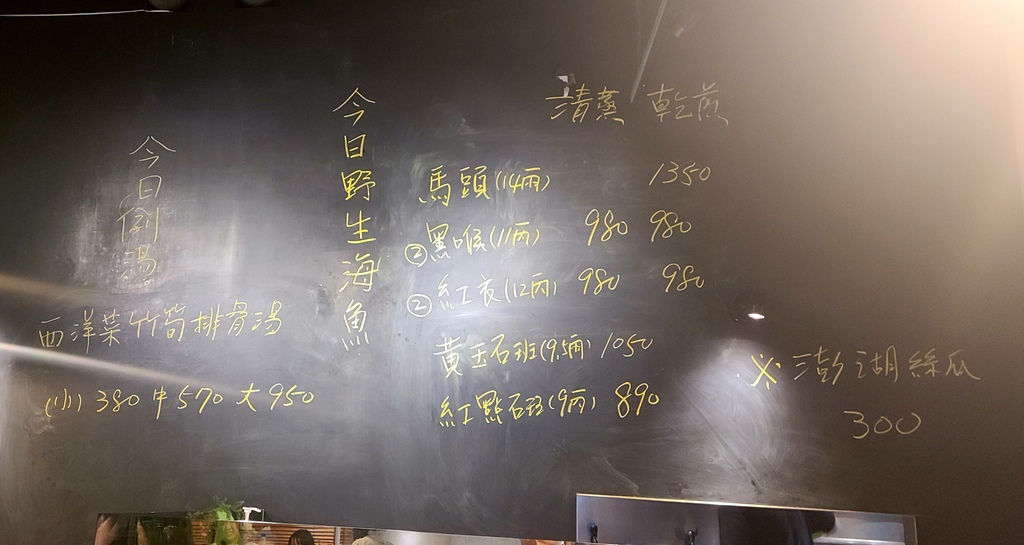 今日例湯
西洋菜竹筍排骨湯
(小) 380 中 570 大 950
今日野生海魚
清蒸 乾煎
馬頭(14兩) 1350
②黑喉(11兩) 980 980
②紅衣(12兩) 980 980
黃玉石班(9.5兩) 1050
紅點石班(9兩) 890
※澎湖絲瓜
300